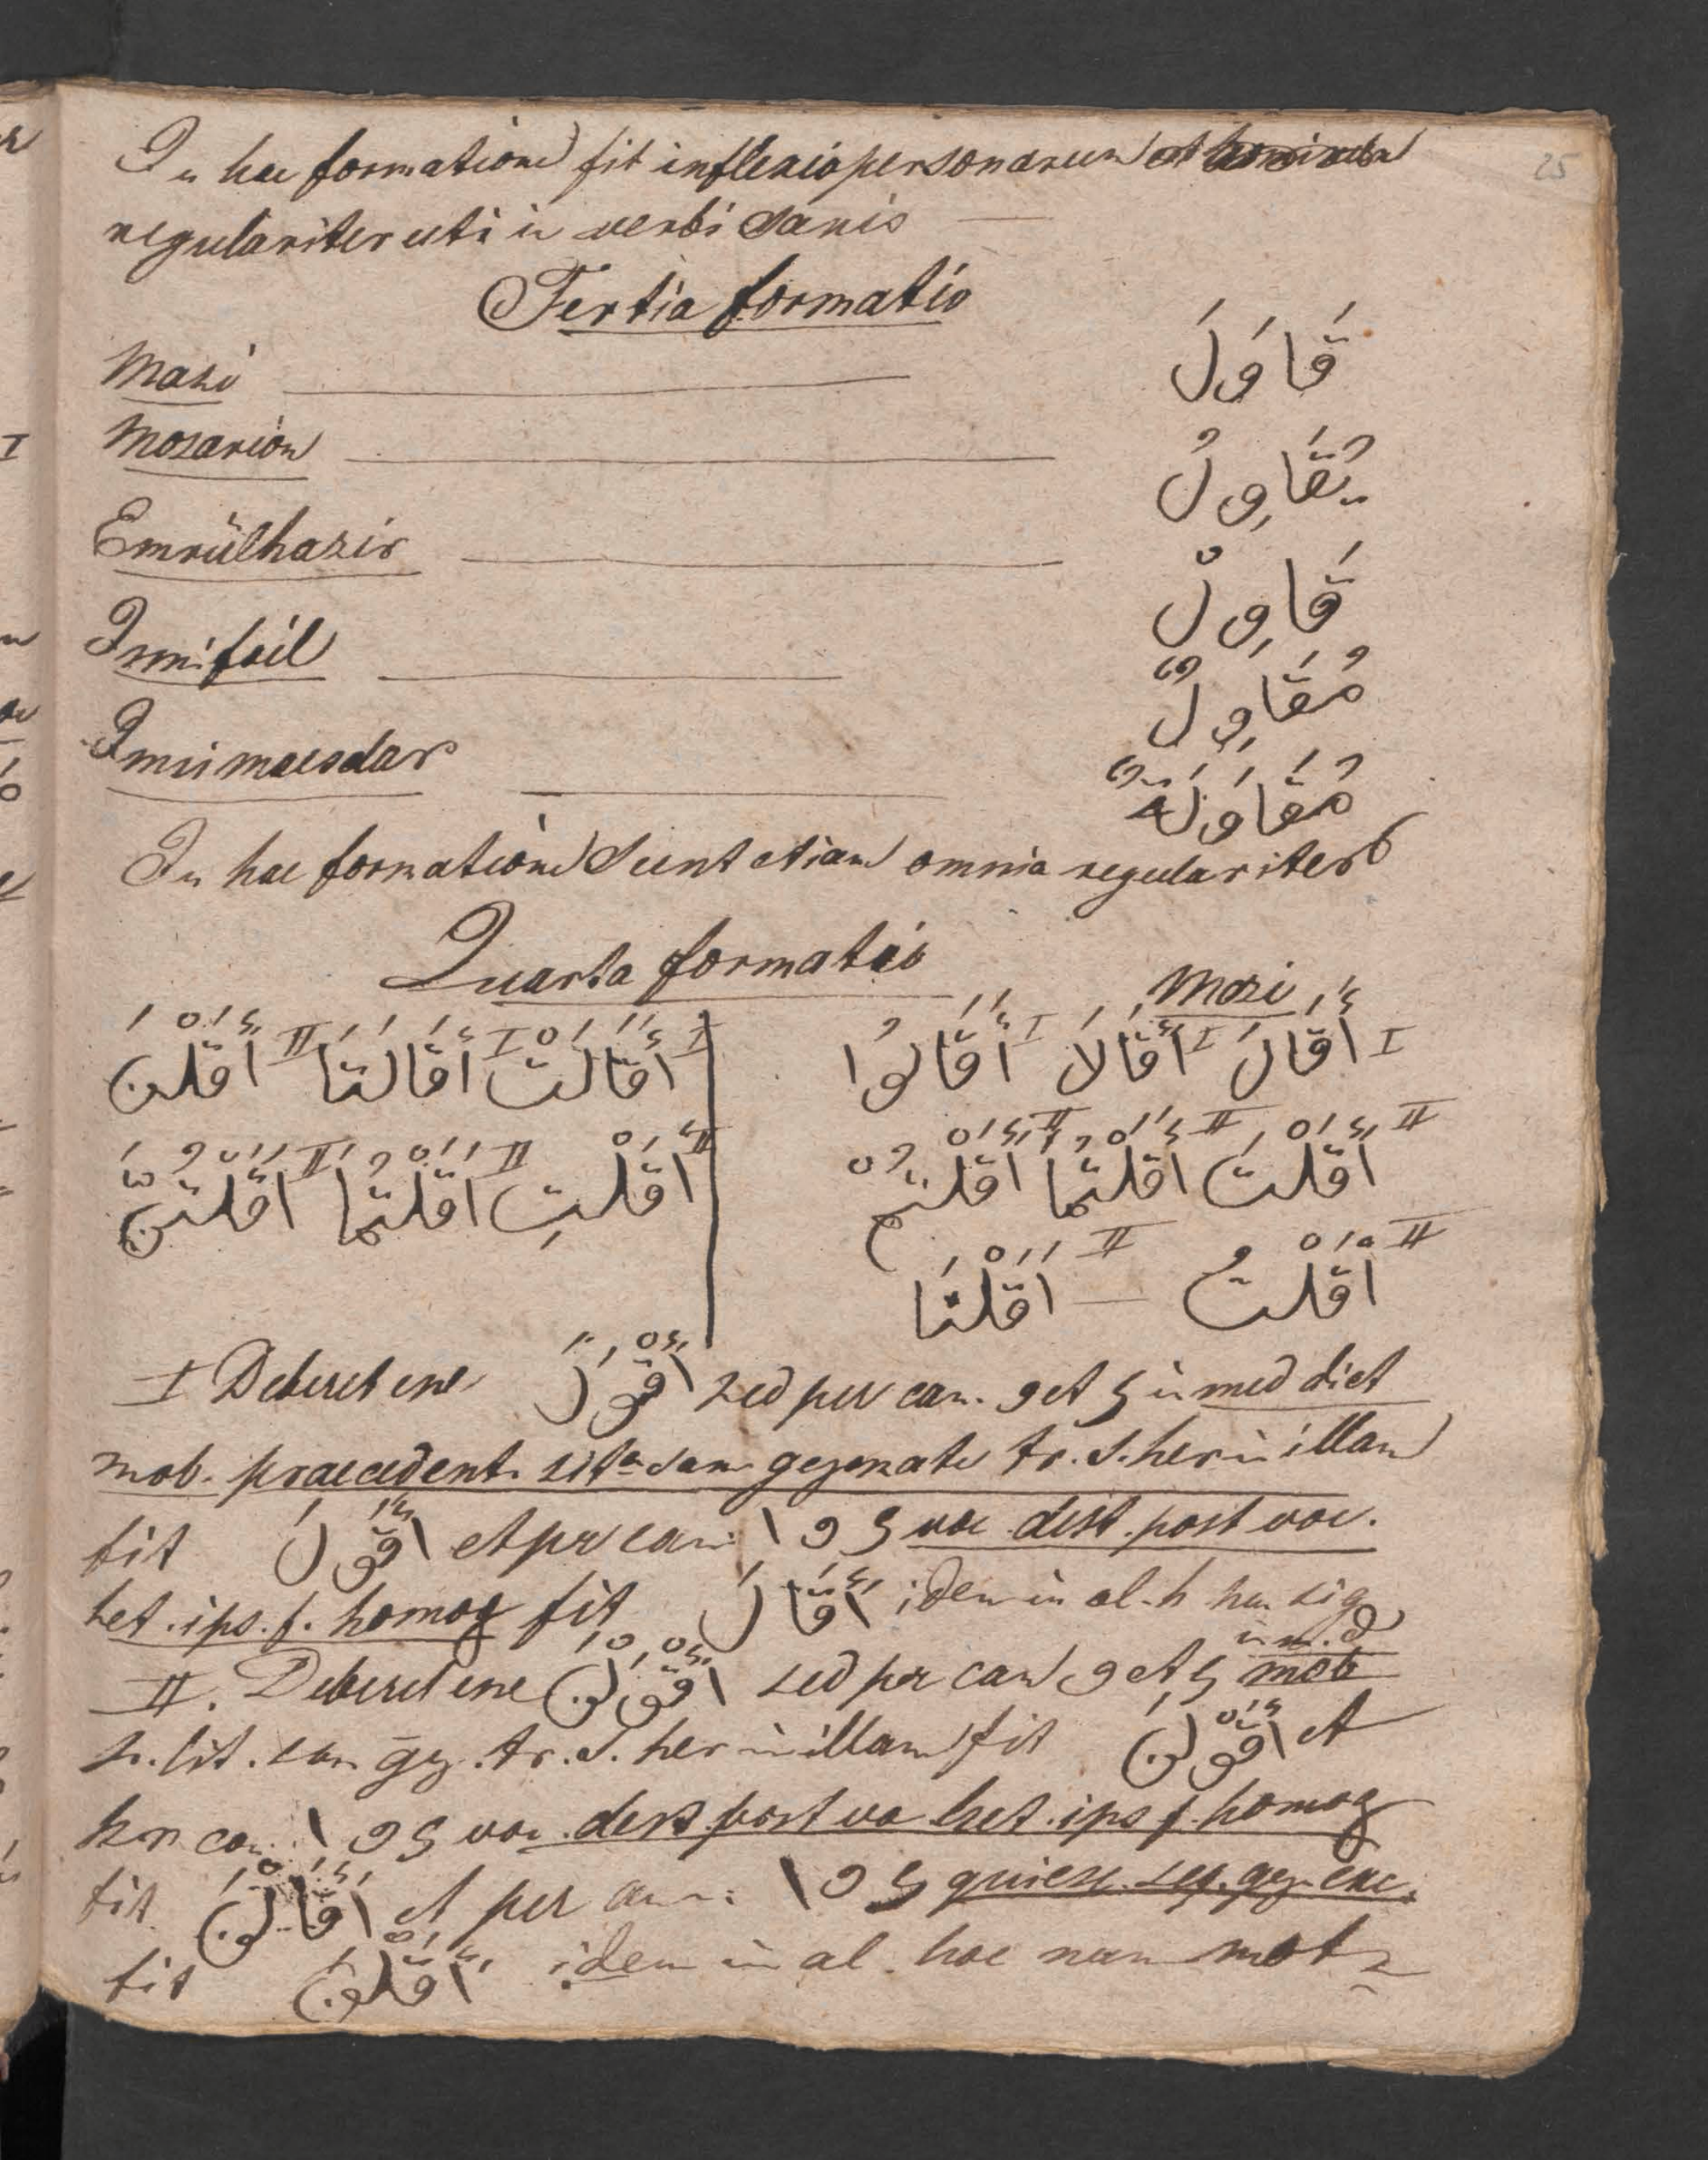 25
In hac formatione fit inflexio personarum et
regulariter uti in verbi sanis
Tertia formatio
Mazi قَاوَلَ
Mozarion يُقَاوِلُ
Emrülhazir قَاوِلْ
Ismifail مُقَاوِلٌ
Ismimaesdar مُقَاوَلَةٌ
In hac formatione sunt etiam omnia regulariter
Quarta formatio
Mazi
I أَقَالَ I أَقَالَا I أَقَالُوا
I أَقَالَتْ I أَقَالَتَا II أَقَلْنَ
II أَقَلْتَ II أَقَلْتُمَا II أَقَلْتُمْ
II أَقَلْتِ II أَقَلْتُمَا II أَقَلْتُنَّ
II أَقَلْتُ — II أَقَلْنَا
I Deberet ene أَقْوَلَ sed per can. و et ي in med dict
mob. praecedent. lit. san gezmate tr. s. her in illam
fit أَقَوْلَ et per can ا و ي voc dest. post voc.
het. ips. f. homog fit أَقَالَ idem in al. h sig
II. Deberet ene أَقْوَلْنَ sed per can و et ي in m. d mob
lit. san gez. tr. s. her in illam fit أَقَوْلْنَ et
per can ا و ي voc dest post vo het. ips f. homog
fit أَقَالْنَ et per can ا و ي quiesc seq. gez. exc.
fit أَقَلْنَ idem in al. hoc num not